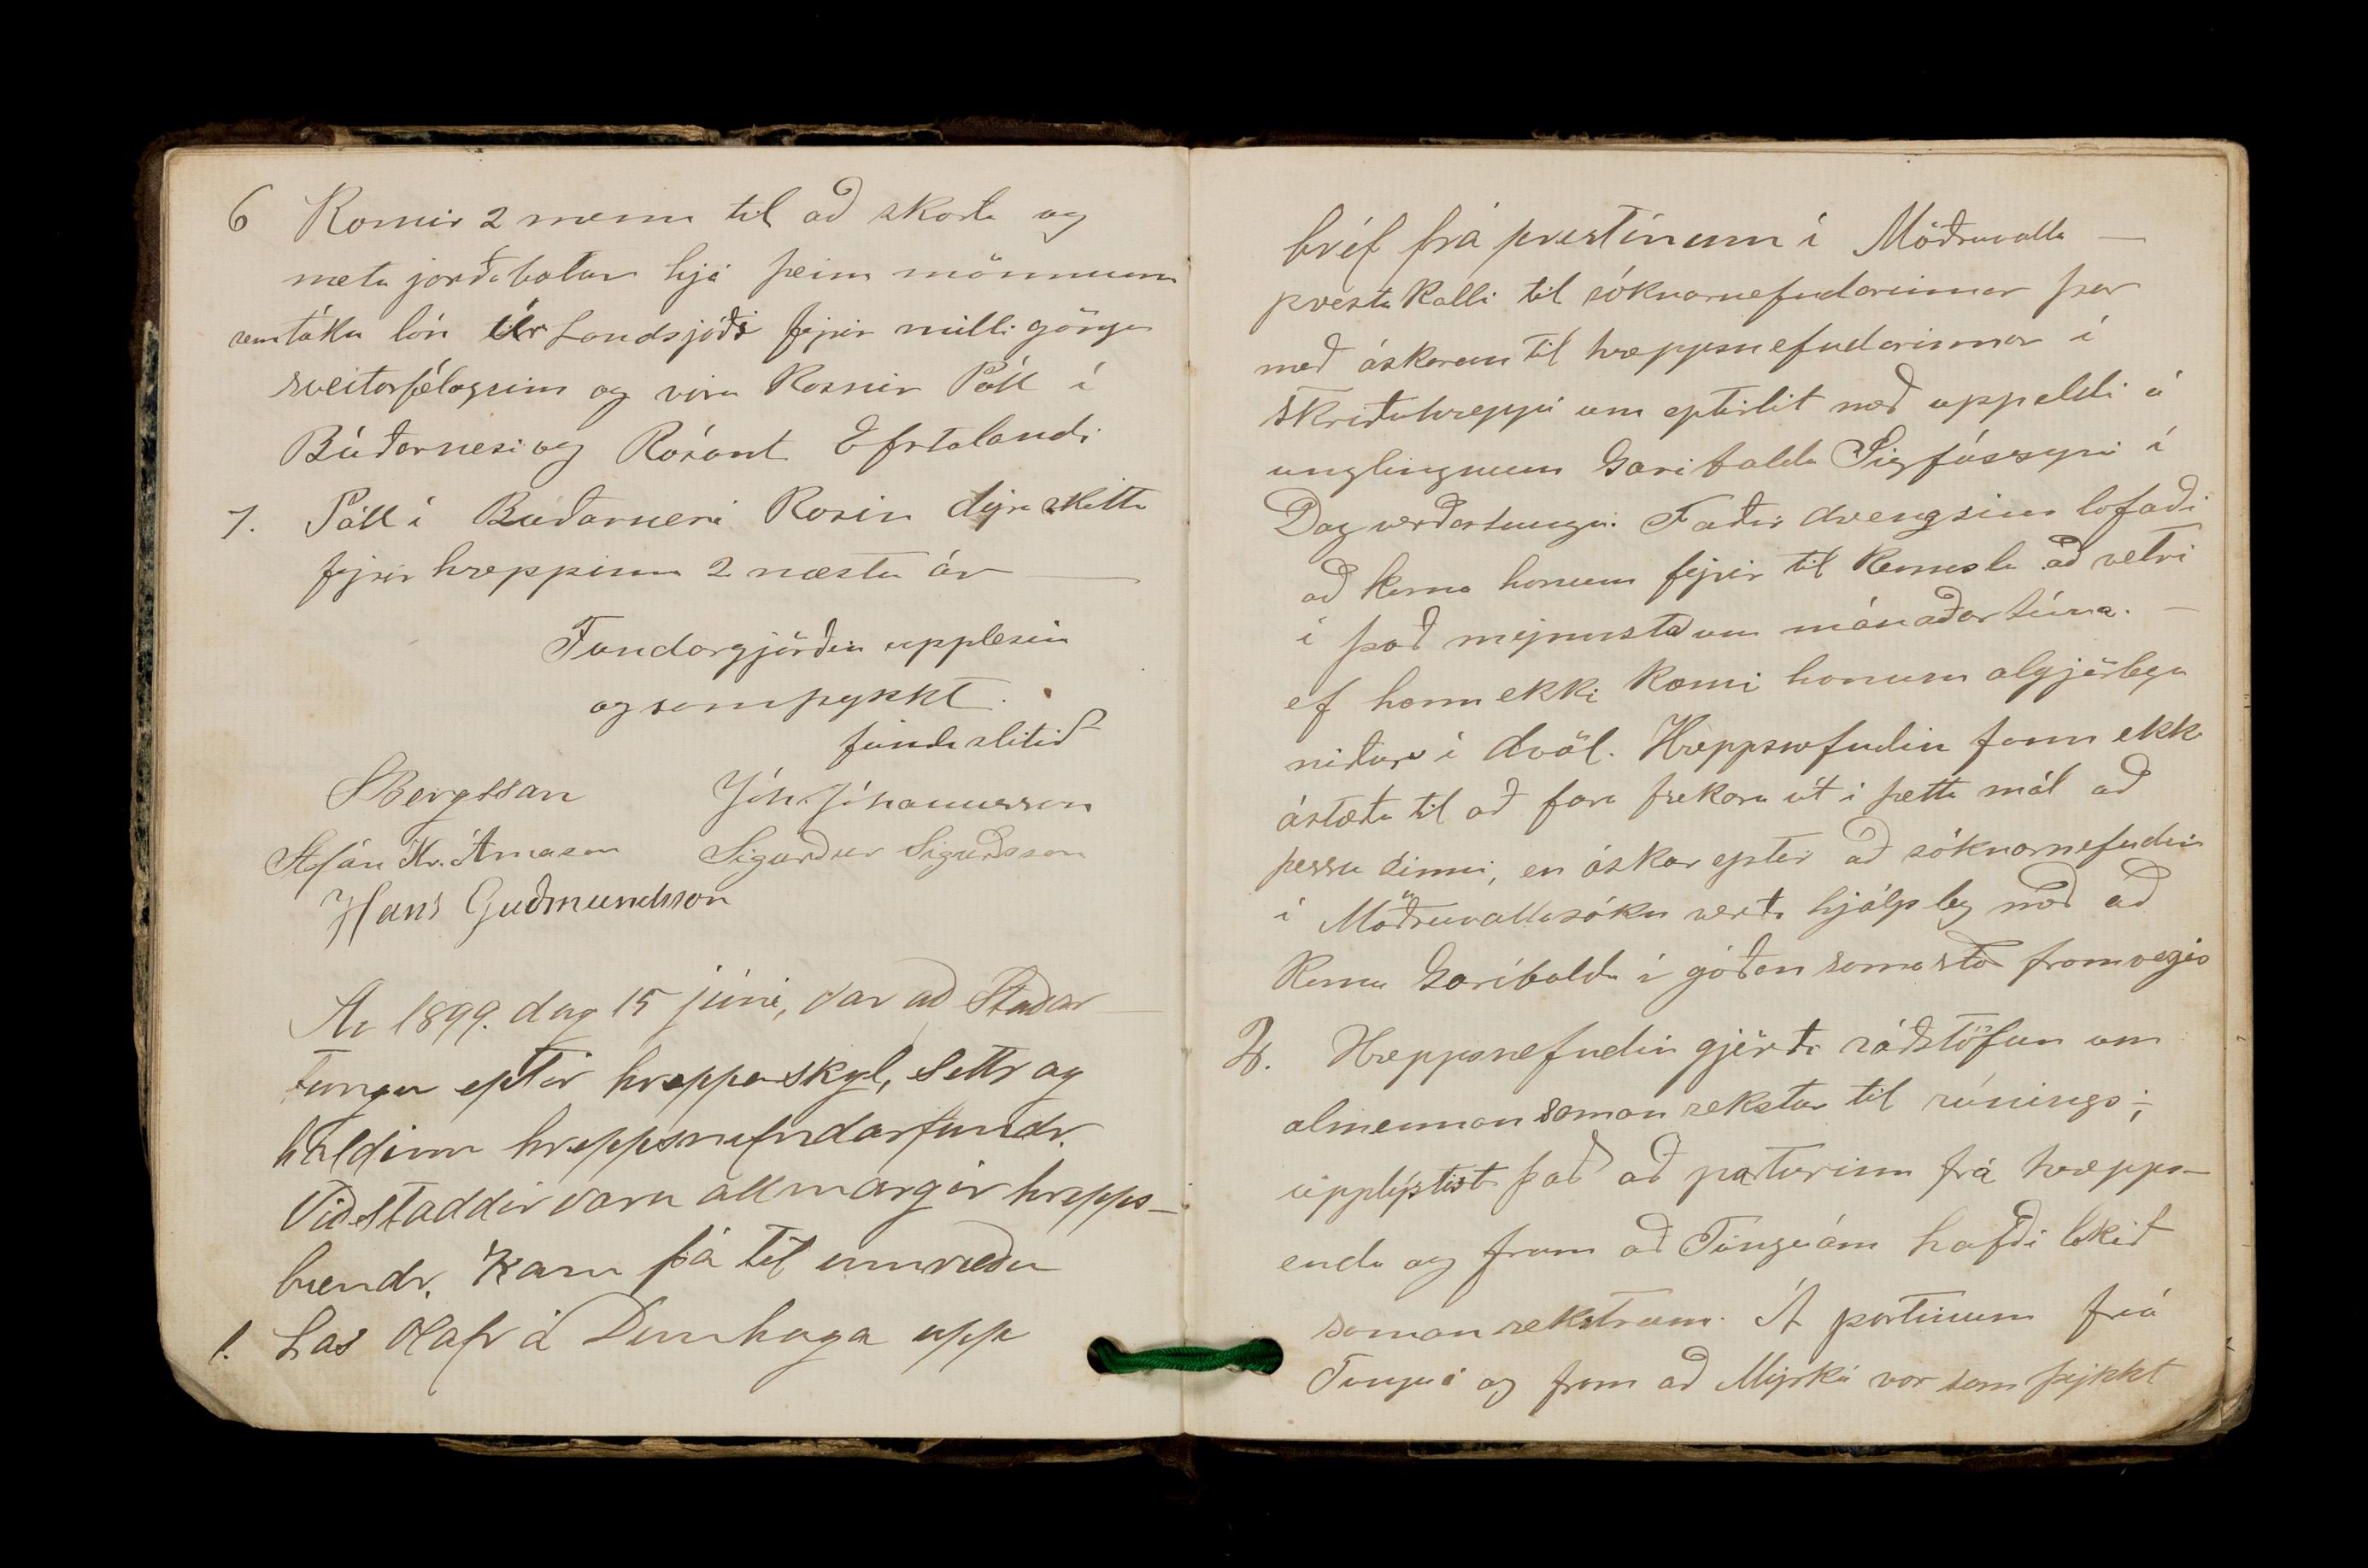 6 Kosnir 2 menn til að skoða og
meta jarðabætur hjá þeim mönnum
sem táku lán úr Landsjóði fyrir milli göngu
sveitarfélagsins og vóru kosnir Páll í
Búðarnesi og Rósant Efstalandi
7. Páll í Búðarnesi kosin dýraskitta
fyrir hreppinn 2 næstu ár —
Fundargjörðin upplesin
og samþykkt.
fundi slitið
SBergsson Jóh. Jóhannesson
Stefán Kr. Árnason Sigurður Sigurðsson
Hans Guðmundsson
Ár 1899. dag 15 júní, var að Staðar-
tungu eptir hreppaskyl, settr og
haldinn hreppsnefndarfundr.
Viðstaddir voru allmargir hrepps-
bændr. Kom þá til umræðu
1. Las Olafr á Dunhaga upp
bréf frá prestinum í Möðruvalla —
prestakalli til sóknarnefndarinnar þar
með áskorun til hreppsnefndarinnar í
Skriðuhreppi um eptirlit með uppeldi á
unglingnum Garibalda Sigfússyni í
Dagverðartungu. Faðir drengsins lofaði
að koma honum fyrir til kennslu að vetri
í það mynnsta um mánaðartíma. —
ef hann ekki kæmi honum algjörlega
niður í dvöl. Hreppsnefndin fann ekki
ástæðu til að fara frekara út í þetta mál að
þessu sinni, en óskar eptir að sóknarnefndin
í Möðruvallasókn verði hjálpleg með að
koma Garibalda í góðan samastað framvegis
2. Hreppsnefndin gjörði ráðstöfun um
almennan saman rekstur til rúnings;
upplýstist það að parturinn frá hrepps-
enda og fram að Tunguám hafði lokið
saman rekstrum. Á partinum frá
Tunguá og fram að Myrká var samþykkt